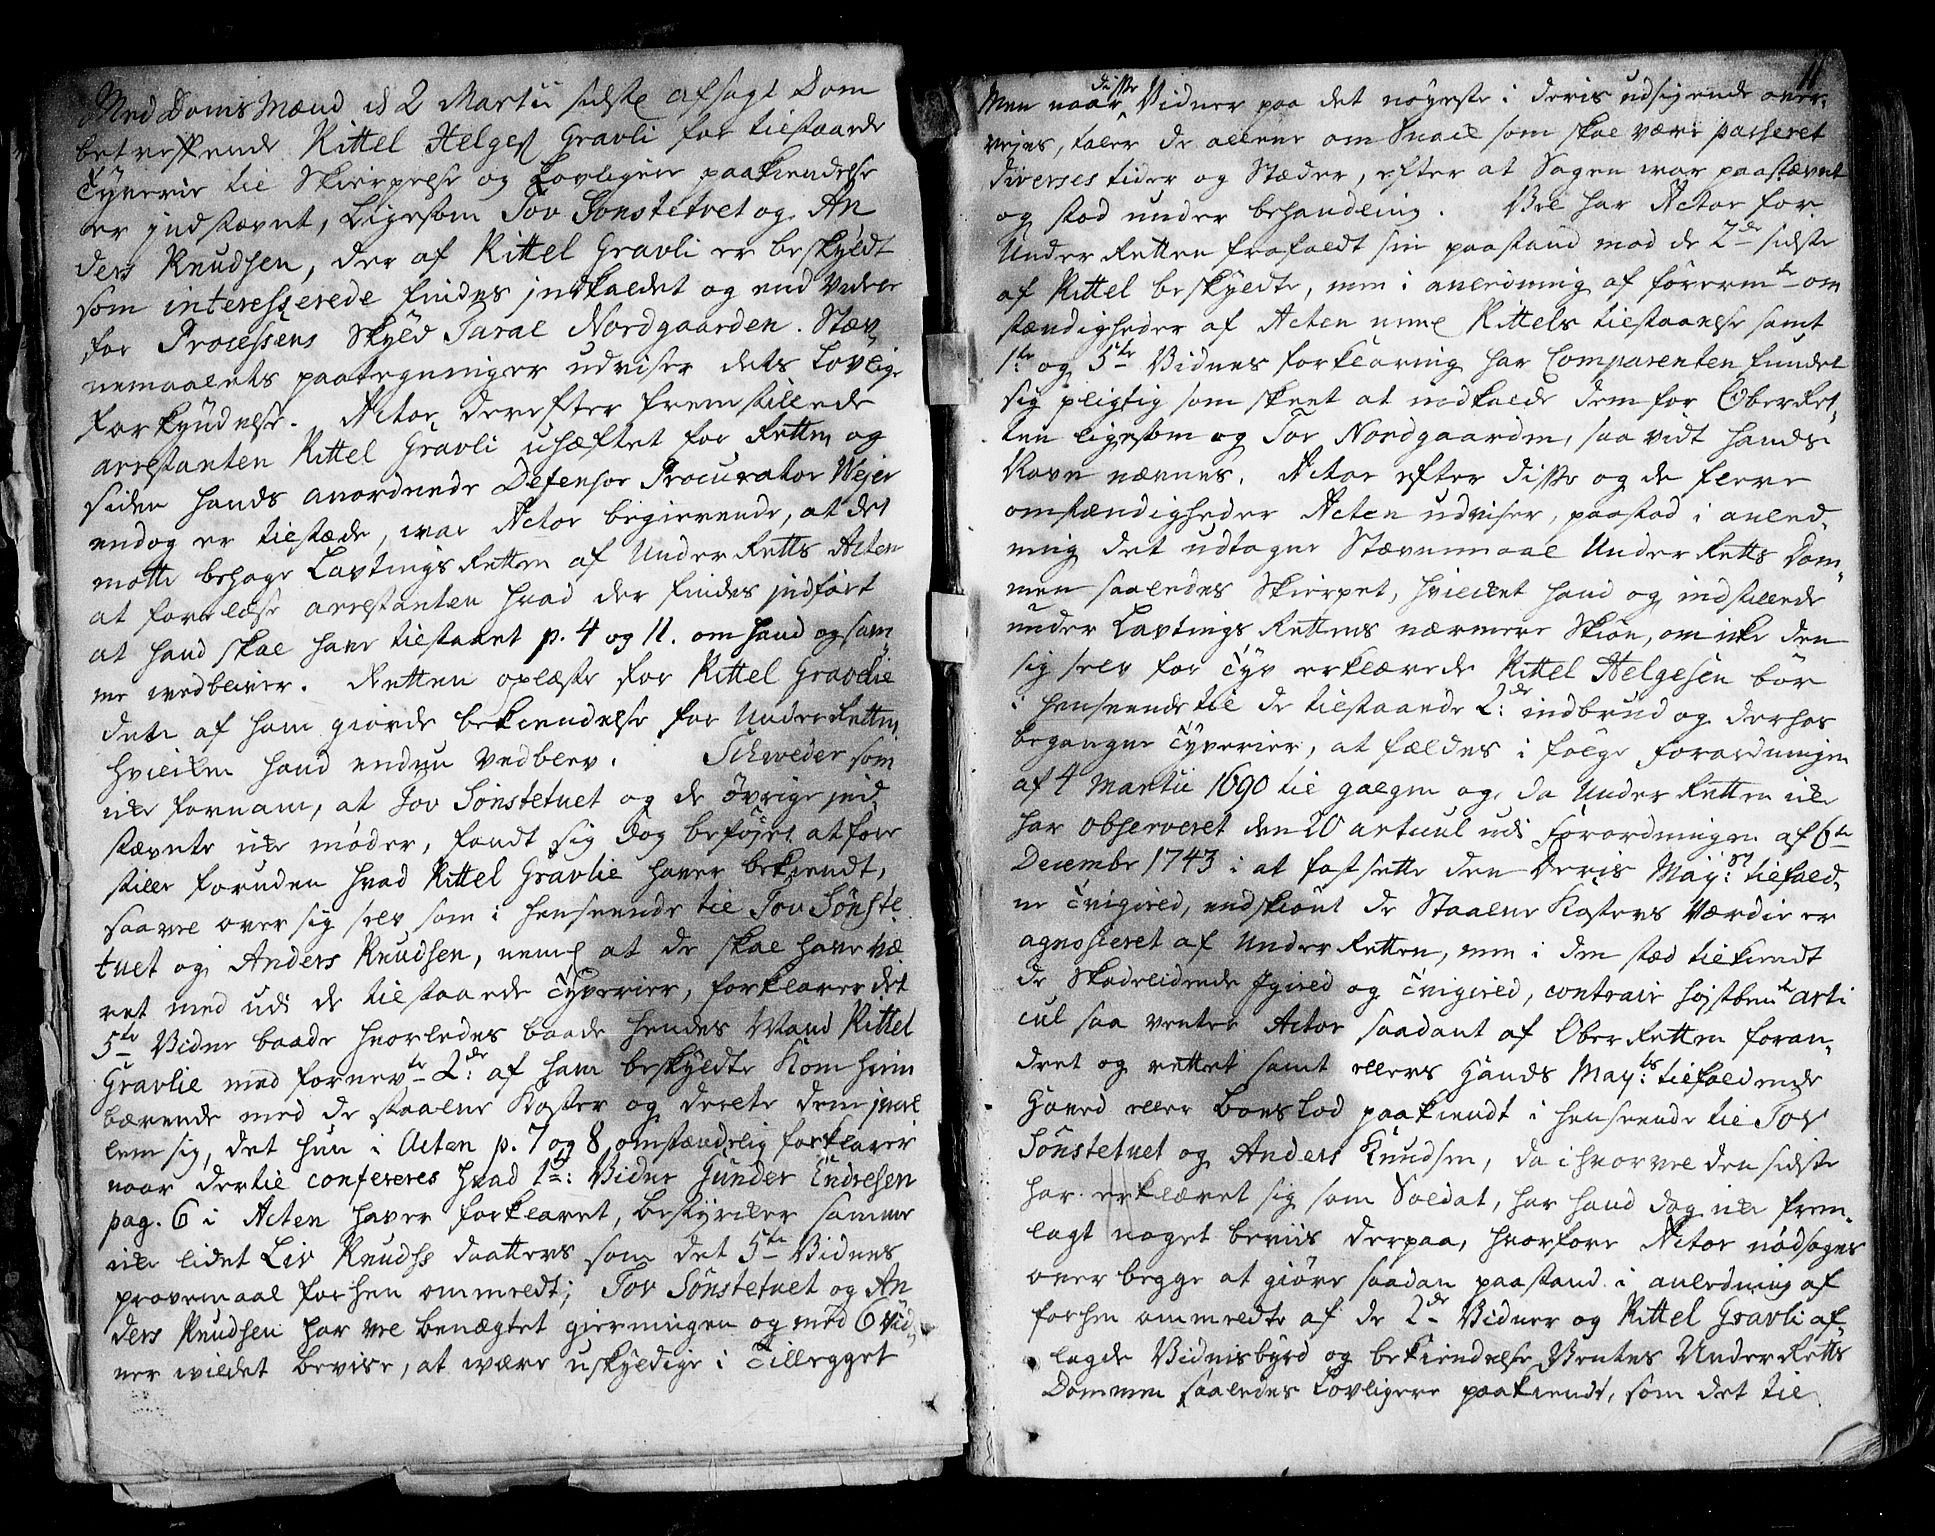 Med Doms Mænd d 2 Martii sidste afsagt Dom
betreffende Kittel Helges Gravli for tilstaaede
Tyverie til Skierpelse og Lovligere paakiendelse
er jndstævnt, Ligesom Tov Sønstetvet og An
ders Knudsen, der af Kittel Gravli er beskyldt
som interesserede findes jndkaldet og end videre
for Processens Skyld Taral Nordgaarden. Stæv
nemaalets paategninger udviser dets Lovlige
forkyndelse. Actor derefter fremstillede
arrestanten Kittel Gravli uhæftet for Retten og
siden hands anordnede Defensor Procurator Wejer
endog er tilstæde, var Actor begierende, at det
motte behage Lavtings Retten af Under Retts Acten
at forelæse arrestanten hvad der findes jndført
at hand skal have tilstaaet p. 4 og 11. om hand og sam
me vedbliver. Retten oplæste for Kittel Gravlie
den af ham giorde bekiendelse for Under Retten,
hvilken hand endnu vedblev. Schweder som
icke fornam, at Tov Sönstetuet og de øvrige jnd
stævnte icke møder, fandt sig dog beføjet at fore
stille foruden hvad Kittel Gravlie haver bekiendt,
saavel over sig selv som i henseende til Tov Sønste
tuet og Anders Knudsen, neml at de skal have væ
ret med udi de tilstaaede Tyverier, forklarer det
5te Vidne baade hvorledes baade hendes Mand Kittel
Gravlie med fornevnte 2de af ham beskyldte Kom hiem
bærende med de staalne Koster og deelte dem jmel
lem sig, det hun i Acten p. 7 og 8 omstændelig forklarer
naar dertil confereres hvad 1te Vidne Gunder Endresen
pag. 6 i Acten haver forklaret, bestyrcker samme
icke lidet Liv Knudsdaatters som det 5te Vidnes
provemaal forhen ommeldt; Tov Sønstetuet og An
ders Knudsen har vel benægtet gierningen og med 6 Vid
ner vildet bevise, at være uskyldige i Tillegget
11
Men naar disse Vidner paa det nøyeste i deris udsigende over
vejes, taler de allene om Snak som skal være passeret
diverses tider og Stæder, efter at Sagen var paastævnt
og stod under behandling. Vel har Actor for
Under Retten frafaldt sin paastand mod de 2de sidste
af Kittel beskyldte, men i anledning af förermte om
stændigheder af Acten neml Kittels tilstaaelse samt
1te og 5te Vidnes forklaring har Comparenten fundet
sig pligtig som skeet at indkalde dem for Ober Ret
ten ligesom og Tor Nordgaarden, saa vidt hands
Navn nævnes. Actor efter disse og de flere
omstændigheder Acten udviser, paastod i anled
ning det udtagne Stævnemaal Under Retts Dom
men saaledes Skierpet, hvilket hand og indstillede
under Lavtings Rettens nærmere Skiøn, om icke den
sig selv for Tyv erklærede Kittel Helgesen bör
i henseende til de tilstaaede 2de indbrud og derhos
begangne Tyverier, at fældes i følge forordningen
af 4 Martii 1690 til galgen og da Under Retten icke
har observeret den 20 articul udi Forordningen af 6te
December 1743 i at fastsette den Deris May:st tilfald
ne Tvigield, endskiönt de Staalne Kosters Værdie er
agnosceret af Under Retten, men i den stæd tilkiendt
de Skadelidende Jgield og Tvigield, contrair højstbemte arti
cul saa venter Actor saadant af Ober Retten foran
dret og rettet samt ellers Hands May:ts tilfaldende
Hoved eller Boeslod paakiendt i henseende til Tov
Sönstetuet og Anders Knudsen, da i hvorvel den sidste
har erklæret sig som Soldat, har hand dog icke frem
lagt noget beviis derpaa, hvorfore Actor nødsages
over begge at giøre saadan paastand i anledning af
forhen ommeldte af de 2de Vidner og Kittel Gravli af
lagde Vidnisbyrd og bekiendelse Ventes Under Retts
Dommen saaledes Lovligere paakiendt, som det til